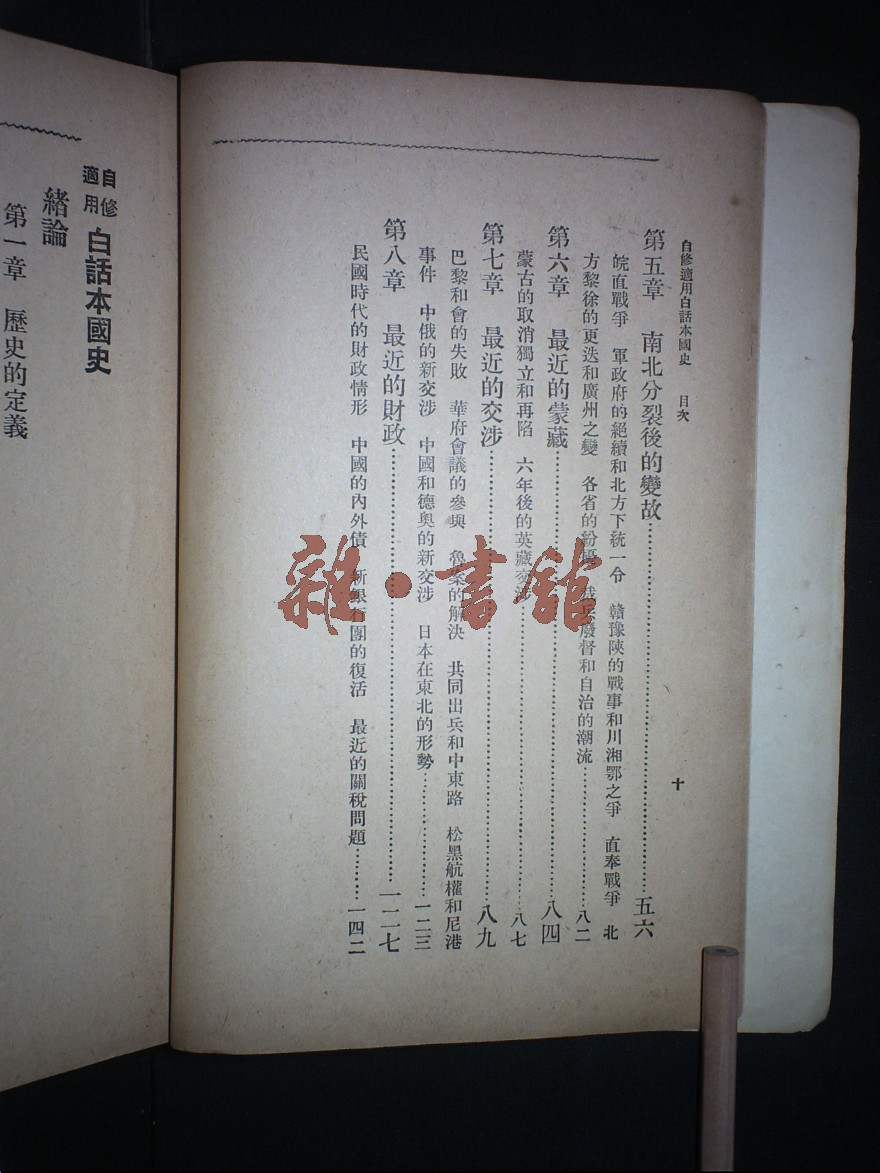 自修適用白話本國史　目次
十
第五章　南北分裂後的變故……五六
皖直戰爭　軍政府的絕續和北方下統一令　贛豫陝的戰事和川湘鄂之爭　直奉戰爭　北
方黎徐的更迭和廣州之變　各省的紛擾　裁兵廢督和自治的潮流……八二
第六章　最近的蒙藏……八四
蒙古的取消獨立和再陷　六年後的英藏交涉……八七
第七章　最近的交涉……八九
巴黎和會的失敗　華府會議的參與　魯案的解決　共同出兵和中東路　松黑航權和尼港
事件　中俄的新交涉　中國和德奧的新交涉　日本在東北的形勢……一二三
第八章　最近的財政……一二七
民國時代的財政情形　中國的內外債　新銀行團的復活　最近的關稅問題……一四二
自修適用　白話本國史
緒論
第一章　歷史的定義
雜·書館